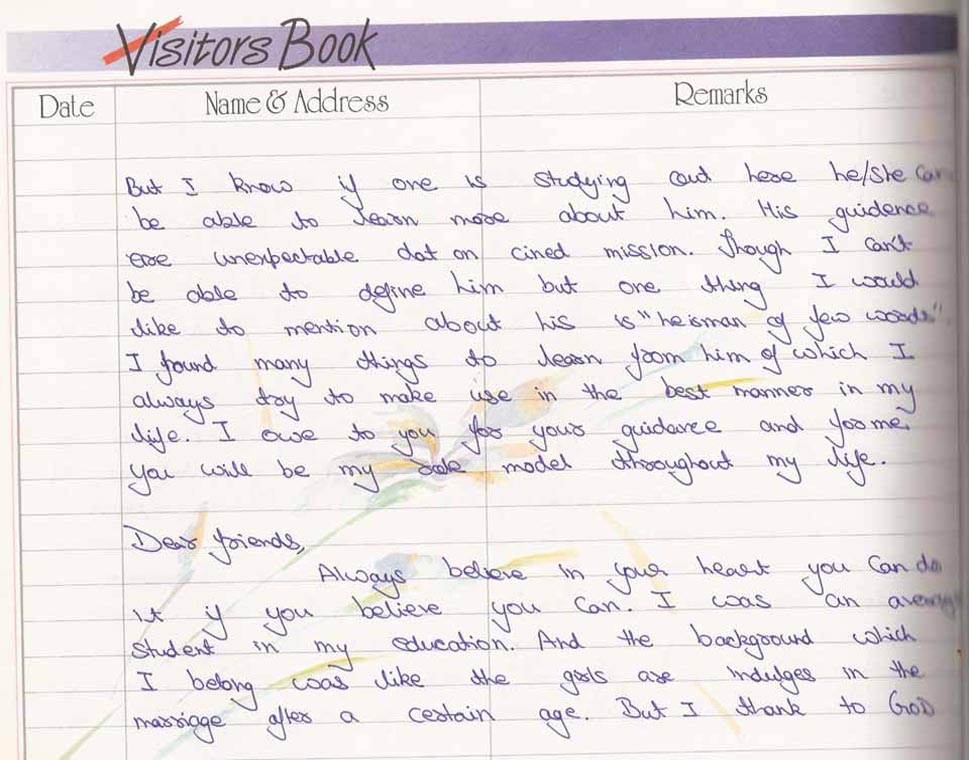 Visitors Book
Date Name & Address Remarks
But I know if one is studying out here he/she can
be able to learn more about him. His guidence
are unexpectable dat on cined mission. Though I can't
be able to define him but one thing I would
like to mention about his is "he is man of few words".
I found many things to learn from him of which I
always try to make use in the best manner in my
life. I owe to you for your guidance and for me
you will be my role model throughout my life.
Dear friends,
Always believe in your heart you can do
it if you believe you can. I was an average
student in my education. And the background which
I belong was like the girls are indulges in the
marriage after a certain age. But I thank to GoD